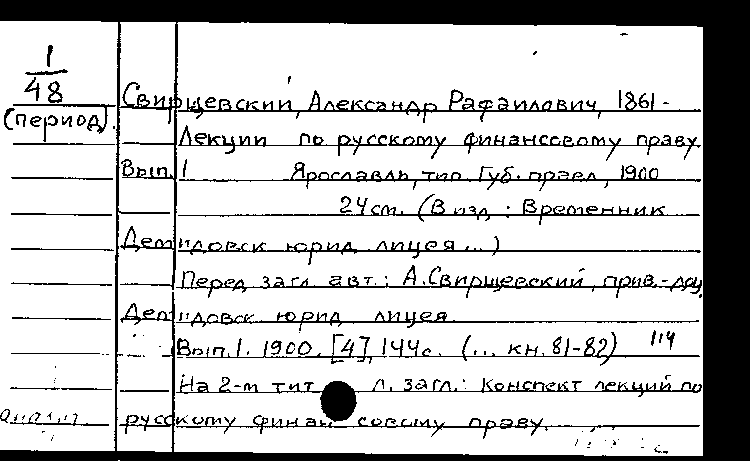 1
48
(период).
Свирщевский, Александр Рафаилович, 1861-
Лекции по русскому финансовому праву.
Вып. 1 Ярославль, тип. Губ. правл, 1900
24 см. (В изд: Временник
Демидовск юрид лицея...)
Перед загл авт.: А.Свирщевский, прив.-доц.
Демидовск юрид лицея.
Вып. 1. 1900. [4], 144с. (... кн. 81-82) 114
На 2-м тит л. загл.: Конспект лекций по
русскому финансовому праву.